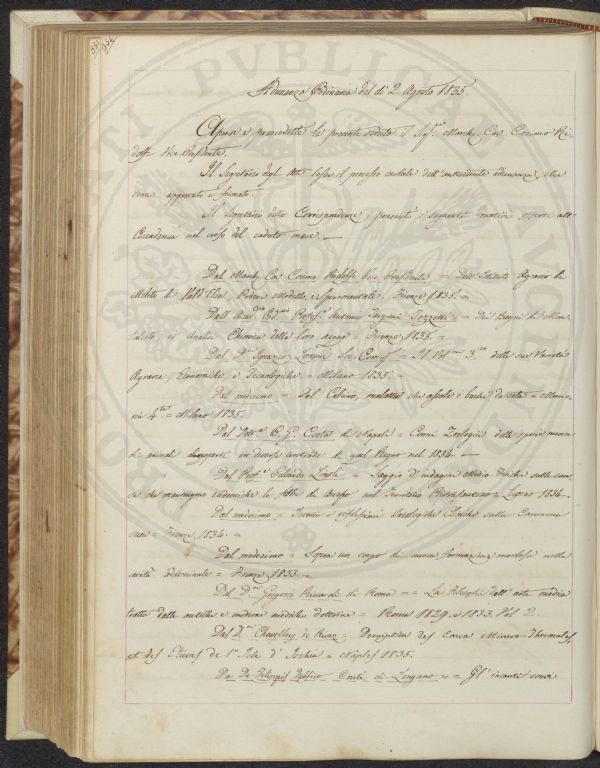 Adunanza Ordinaria del dì 2. Agosto 1835.
Aperse e presiedette la presente seduta il Sig.re March. Cav. Cosimo Ri-
dolfi Vice Presidente.
Il Segretario degli Atti lesse il processo verbale dell'antecedente adunanza, che
venne approvato e firmato.
Il Segretario delle Corrispondenze presentò i seguenti donativi offerti all'
Accademia nel corso del caduto mese.
Dal March. Cav. Cosimo Ridolfi Vice Presidente = Dell'Istituto Agrario di
Meleto di Vald'Elsa, Podere Modello, e Sperimentale. Firenze 1835. =
Dall' Profess. Antonio Targioni Tozzetti = Dei Bagni di Mon-
talceto, ed Analisi Chimica delle loro acque = Firenze 1835. =
Dal D. Ignazio = Il N. 3. delle sue Varietà
Agrarie, Economiche e Tecnologiche. = Milano 1835. =
Dal medesimo = Del Calcino, malattia che assale i bachi da seta = Memo-
ria 4. = Milano 1835.
Dal Dott. O. G. Costa di Napoli = Cenni Zoologici delle specie nuove
di animali discoperti in diverse contrade di quel Regno nel 1834. =
Dal Prof. = Saggio d'indagini Medico Fisiche sulle cau-
se che mantengono endemiche le febbri di accesso nel Territorio Pietrasantino = 1834.
Dal medesimo = Teorie e riflessioni Patologiche Cliniche sulla
= Firenze 1834. =
Dal medesimo = Sopra un corpo di nuova formazione morbosa nella
cavità addominale = Firenze 1833. =
Dal D. Gregorio Riccardi di Roma = La Filosofia dell'arte medica
tratta dalle antiche e moderne mediche dottrine = Roma 1829. e 1833. Vol 2.
Dal D. Chevalley de Rivaz = Description des Eaux Minero-Thermales,
et des Etuves de l'Isle d'Ischia = Naples 1835.
Da De Filippis Delfico Conte di Longano = Gl'incanti